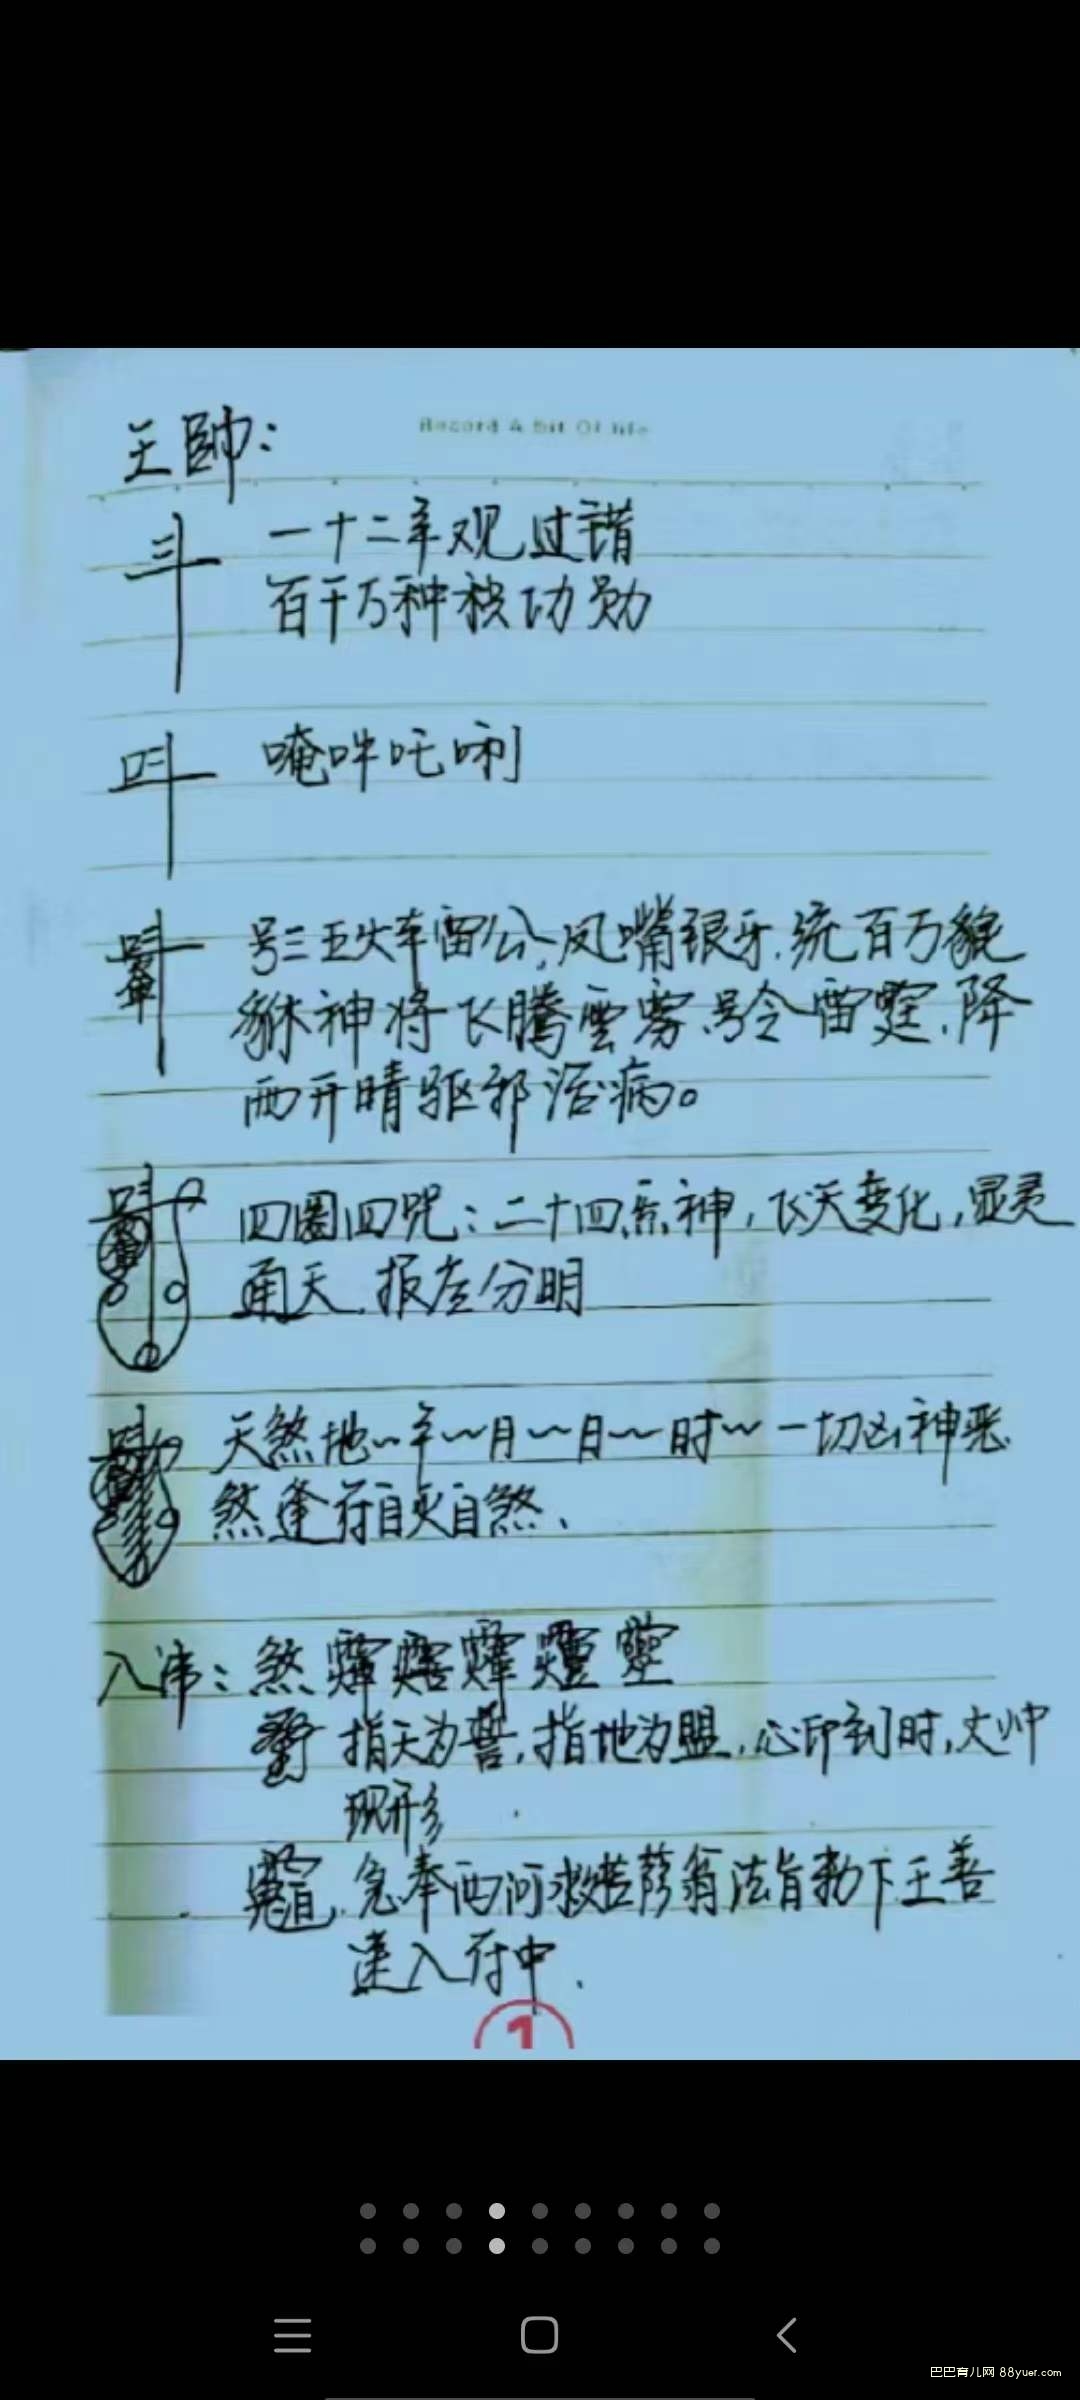 王帥：
Record A bit Of life
一十二年观过错
百千万种积功勋
唵吽吒唎
号三五火车雷公，凤嘴银牙，统百万貔
貅神将飞腾雲雾，号令雷霆，降
雨开晴驱邪治病。
四圈四咒：二十四炁神，飞天变化，显灵
通天，报应分明
天煞地～年～月～日～时～一切凶神恶
煞逢符自灭自煞、
入讳：煞
指天为誓，指地为盟，心印到时，火帅
现形
急奉西河救苦萨翁法旨勅下王善
速入符中．
1
巴巴育儿网 88yuer.com